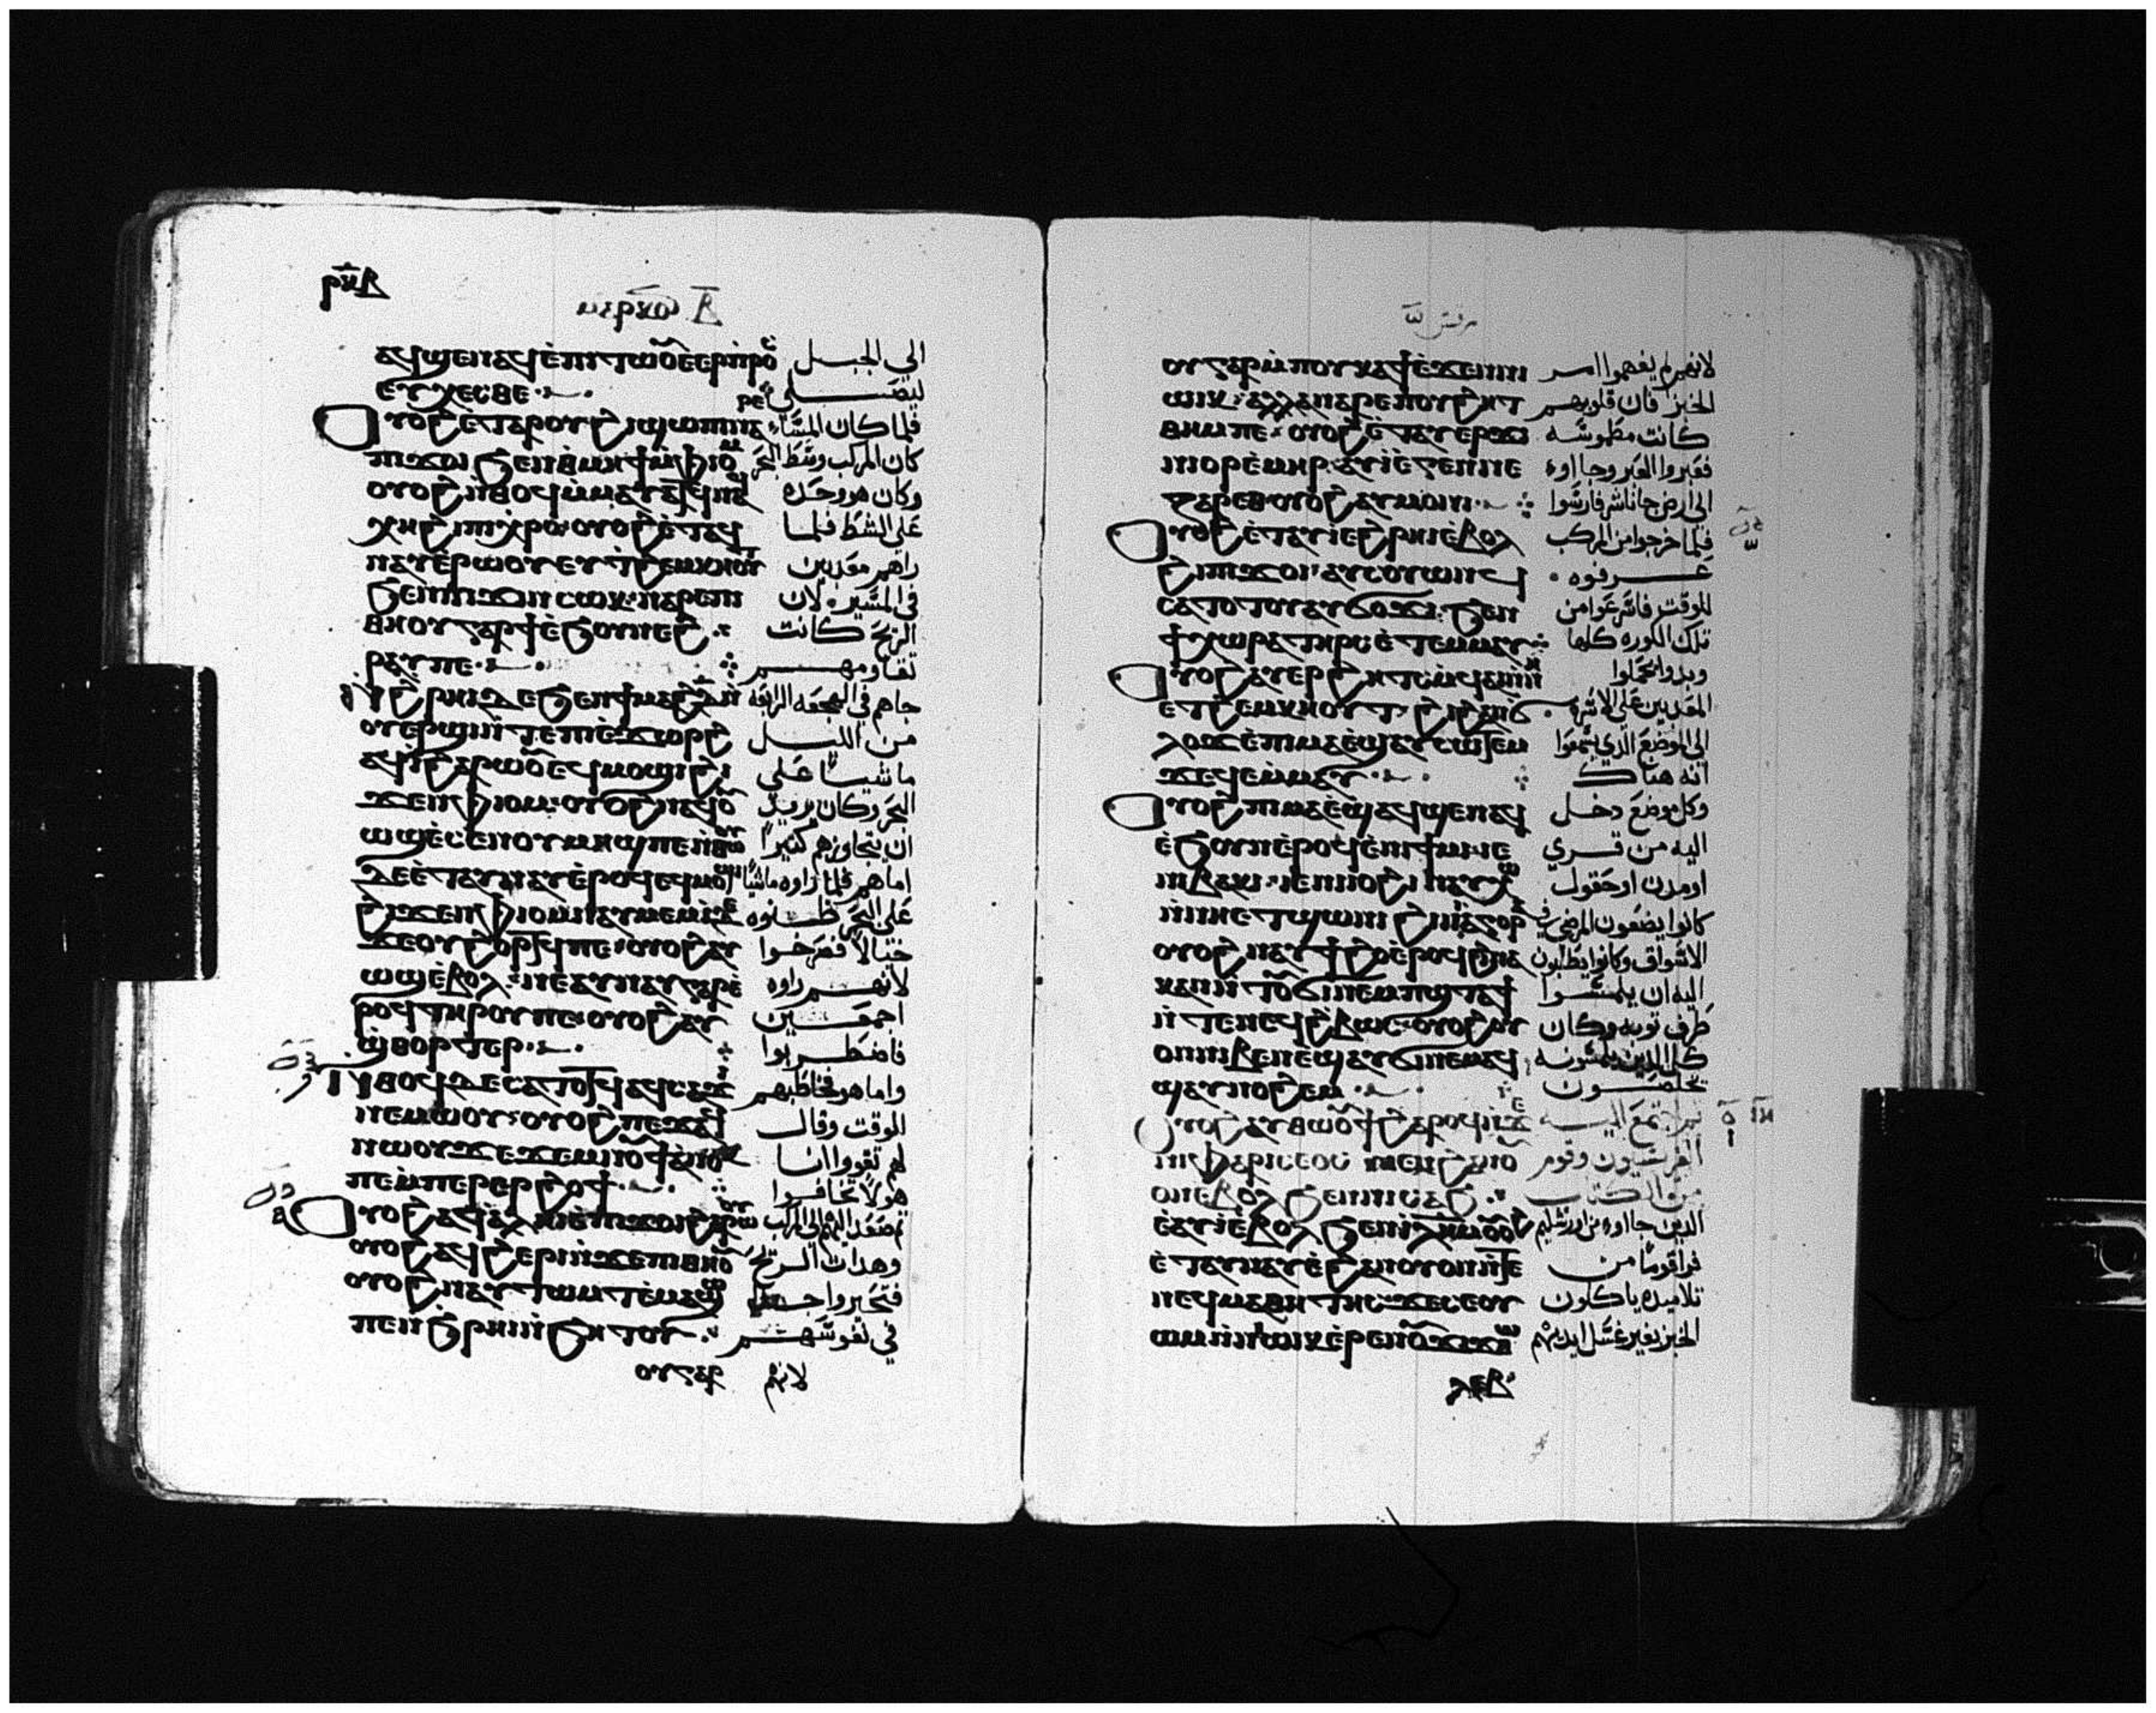 ⲣⲕⲃ
ⲙⲁⲣⲕⲟⲥ ⲃ
ⲁϥϣⲉⲛⲁϥ ⲉ̀ⲡⲓⲧⲱⲟⲩ ⲉ̀ⲉⲣⲡⲣⲟⲥ الي الجبل
ⲉⲩⲭⲉⲥⲑⲉ ليصلي
ⲟⲩⲟϩ ⲉⲧⲁⲣⲟⲩϩⲓ ϣⲱⲡⲓ ⲛⲁⲣⲉ فلما كان المساء
ⲡⲓϫⲟⲓ ϧⲉⲛ ⲑⲙⲏϯ ⲙ̀ⲫⲓⲟⲙ كان المركب وسط البحر
ⲟⲩⲟϩ ⲛ̀ⲑⲟϥ ⲙ̀ⲙⲁⲩⲁⲧϥ ⲛⲁϥ وكان هو وحده
ⲭⲏ ϩⲓ ⲡⲓⲭⲣⲟ ⲟⲩⲟϩ ⲉ̀ⲧⲁϥ علي الشط فلما
ⲛⲁⲩ ⲉ̀ⲣⲱⲟⲩ ⲉⲩⲧϩⲉⲙⲕⲏⲟⲩⲧ راهم معذبين
ϧⲉⲛ ⲡϫⲓⲛⲥⲱⲕ ⲛⲁⲣⲉ ⲡⲓ في المسير لان
ⲑⲏⲟⲩ ⲅⲁⲣ ϯ ⲉ̀ϧⲟⲩⲛ ⲉϩ الريح كانت
ⲣⲁⲩ ⲡⲉ تقاومهم
ⲛ̀ϩⲣⲏⲓ ⲇⲉ ϧⲉⲛ ϯⲙⲁϩⲇ̅ ⲛ̀ جاهم في الهجعه الرابعه
ⲟⲩⲉⲣϣⲓ ⲛ̀ⲧⲉ ⲡⲓⲉ̀ϫⲱⲣϩ من الليل
ⲁϥⲓ̀ ϩⲁⲣⲱⲟⲩ ⲉϥⲙⲟϣⲓ ϩⲓ ماشيا علي
ϫⲉⲛ ⲫⲓⲟⲙ ⲟⲩⲟϩ ⲛⲁϥⲟⲩ البحر وكان يريد
ⲱϣ ⲉ̀ⲥⲉⲛⲟⲩ ⲙⲏϣ ⲡⲉ ⲛ̀ⲑⲱⲟⲩ ان يتجاوزهم كثيرا
ⲇⲉ ⲉ̀ⲧⲁⲩⲛⲁⲩ ⲉ̀ⲣⲟϥ ⲉϥⲙⲟϣⲓ اما هم فلما راوه ماشيا
ϩⲓϫⲉⲛ ⲫⲓⲟⲙ ⲛⲁⲩⲙⲉⲩⲓ̀ علي البحر ظنوه
ϫⲉ ⲟⲩϩⲟⲣⲧϥ ⲡⲉ ⲟⲩⲟϩ ⲁⲩ خيالا فصرخوا
ⲱϣ ⲉ̀ⲃⲟⲗ ⲛⲉ ⲁⲩⲛⲁⲩ ⲅⲁⲣ ⲉ̀ لانهم راوه
ⲣⲟϥ ⲧⲏⲣⲟⲩ ⲡⲉ ⲟⲩⲟϩ ⲁⲩ اجمعين
ϣ̀ⲑⲟⲣⲧⲉⲣ فاضطربوا
ⲛ̀ⲑⲟϥ ⲇⲉ ⲥⲁⲧⲟⲧϥ ⲁϥⲥⲁϫⲓ واما هو فخاطبهم
ⲛⲉⲙⲱⲟⲩ ⲟⲩⲟϩ ⲡⲉϫⲁϥ للوقت وقال
ⲛⲱⲟⲩ ϫⲉ ϫⲉⲙⲛⲟⲙϯ ⲁⲛⲟⲕ لهم تقووا انا
ⲡⲉ ⲙ̀ⲡⲉⲣⲉⲣϩⲟϯ هو لا تخافوا
ⲟⲩⲟϩ ⲁϥⲁ̀ⲗⲏⲓ ⲉ̀ⲡⲓϫⲟⲓ ϩⲁⲣⲱⲟⲩ ثم صعد اليهم الي المركب
ⲟⲩⲟϩ ⲁϥϩⲉⲣⲓ ⲛ̀ϫⲉ ⲡⲓⲑⲏⲟⲩ وهدات الريح
ⲟⲩⲟϩ ⲛⲁⲩⲧⲱⲙⲧ ⲉ̀ⲙⲁϣⲱ فتحيروا جدا
ⲡⲉ ⲛ̀ϧⲣⲏⲓ ⲛ̀ϧⲏⲧⲟⲩ في نفوسهم
ⲟⲩ ⲅⲁⲣ لانهم
مرقس
ⲟⲩ ⲅⲁⲣ ⲙ̀ⲡⲟⲩⲕⲁϯ ⲉ̀ϫⲉⲛ ⲛⲓ لانهم لم يفهموا امر
ⲱⲓⲕ ⲁⲗⲗⲁ ⲛⲁⲣⲉ ⲡⲟⲩϩⲏⲧ الخبز فان قلوبهم
ⲑⲏⲙ ⲡⲉ ⲟⲩⲟϩ ⲉ̀ⲧⲁⲩⲉⲣϫⲓ كانت مطموسه
ⲛⲓⲟⲣ ⲉ̀ⲙⲏⲣ ⲁⲩⲓ̀ ⲉ̀ⲅⲉⲛⲛⲉ فعبروا العبر وجاا وا
ⲍⲁⲣⲉⲑ ⲟⲩⲟϩ ⲁⲩⲙⲟⲛⲓ الي ارض جاناشر فارسوا
ⲟⲩⲟϩ ⲉ̀ⲧⲁⲩⲓ̀ ⲉ̀ϩⲣⲏⲓ ⲉ̀ⲃⲟⲗ فلما خرجوا من المركب
ϩⲓ ⲡⲓϫⲟⲓ ⲁⲩⲥⲟⲩⲱⲛϥ عرفوه
ⲥⲁⲧⲟⲧⲟⲩ ⲁⲩϭⲟϫⲓ ϧⲉⲛ للوقت فاسرعوا من
ϯⲭⲱⲣⲁ ⲧⲏⲣⲥ ⲉ̀ⲧⲉⲙⲙⲁⲩ تلك الكوره كلها
ⲟⲩⲟϩ ⲁⲩⲉⲣϩⲏⲧⲥ ⲛ̀ϥⲁⲓ ⲛ̀ⲛⲏ وبدوا يحملوا
ⲉⲧϩⲉⲙⲕⲏⲟⲩⲧ ϩⲓ ϩⲁⲛϭ المعذبين علي الاسره
ⲗⲟϫ ⲉ̀ⲡⲓⲙⲁ ⲉ̀ϣⲁⲩⲥⲱⲧⲉⲙ الي الموضع الذي يسمعوا
ϫⲉ ϥⲉⲙ̀ⲙⲁⲩ انه هناك
ⲟⲩⲟϩ ⲡⲓⲙⲁ ⲉ̀ϣⲁϥϣⲉⲛⲁϥ وكل موضع دخل
ⲉ̀ϧⲟⲩⲛ ⲉ̀ⲣⲟϥ ⲉ̀ⲛⲓϯⲙⲓ ⲓⲉ اليه من قري
ⲛⲓⲃⲁⲕⲓ ⲓⲉ ⲛⲓⲓⲟϩⲓ ⲛⲁⲩⲭⲱ او مدن او حقول
ⲛ̀ⲛⲏ ⲉⲧϣⲱⲛⲓ ϩⲓ ⲛⲓⲁ̀ⲅⲟⲣⲁ كانوا يضعون المرضي في
ⲟⲩⲟϩ ⲛⲁⲩϯϩⲟ ⲉ̀ⲣⲟϥ ϩⲓⲛⲁ الاسواق وكانوا يطلبون
ⲕⲁⲛ ⲛ̀ⲧⲟⲩϭⲓⲛⲉⲙ ⲡϣⲧⲁϯ اليه ان يلمسوا
ⲛ̀ⲧⲉ ⲡⲉϥϩ̀ⲃⲱⲥ ⲟⲩⲟϩ ⲟⲩ طرف ثوبه وكان
ⲟⲛ ⲛⲓⲃⲉⲛ ⲉ̀ϣⲁⲩϭⲓⲛⲉⲙⲁϥ كل الذين يلمسونه
ϣⲁⲩⲛⲟϩⲉⲙ يخلصون
ⲟⲩⲟϩ ⲁⲩⲑⲱⲟⲩϯ ϩⲁⲣⲟϥ ⲛ̀ϫⲉ ثم اجتمع اليه
ⲛⲓⲫⲁⲣⲓⲥⲉⲟⲥ ⲛⲉⲙ ϩⲁⲛⲟⲩ الفريسيون وقوم
ⲟⲛ ⲉ̀ⲃⲟⲗ ϧⲉⲛ ⲛⲓⲥⲁϧ من الكتاب
ⲉ̀ⲁⲩⲓ̀ ⲉ̀ⲃⲟⲗ ϧⲉⲛ ⲓⲗ̅ⲏ̅ⲙ̅ الذين جااوا من اورشليم
ⲉ̀ⲧⲁⲩⲛⲁⲩ ⲉ̀ϩⲁⲛⲟⲩⲟⲛ ⲛ̀ⲧⲉ فراوا قوما من
ⲛⲉϥⲙⲁⲑⲏⲧⲏⲥ ϫⲉ ⲥⲉⲟⲩ تلاميذه ياكلون
ⲱⲙ ⲛ̀ⲛⲓⲱⲓⲕ ⲉ̀ⲣⲉ ⲛⲟⲩϫⲓϫ الخبز بغير غسل ايديهم